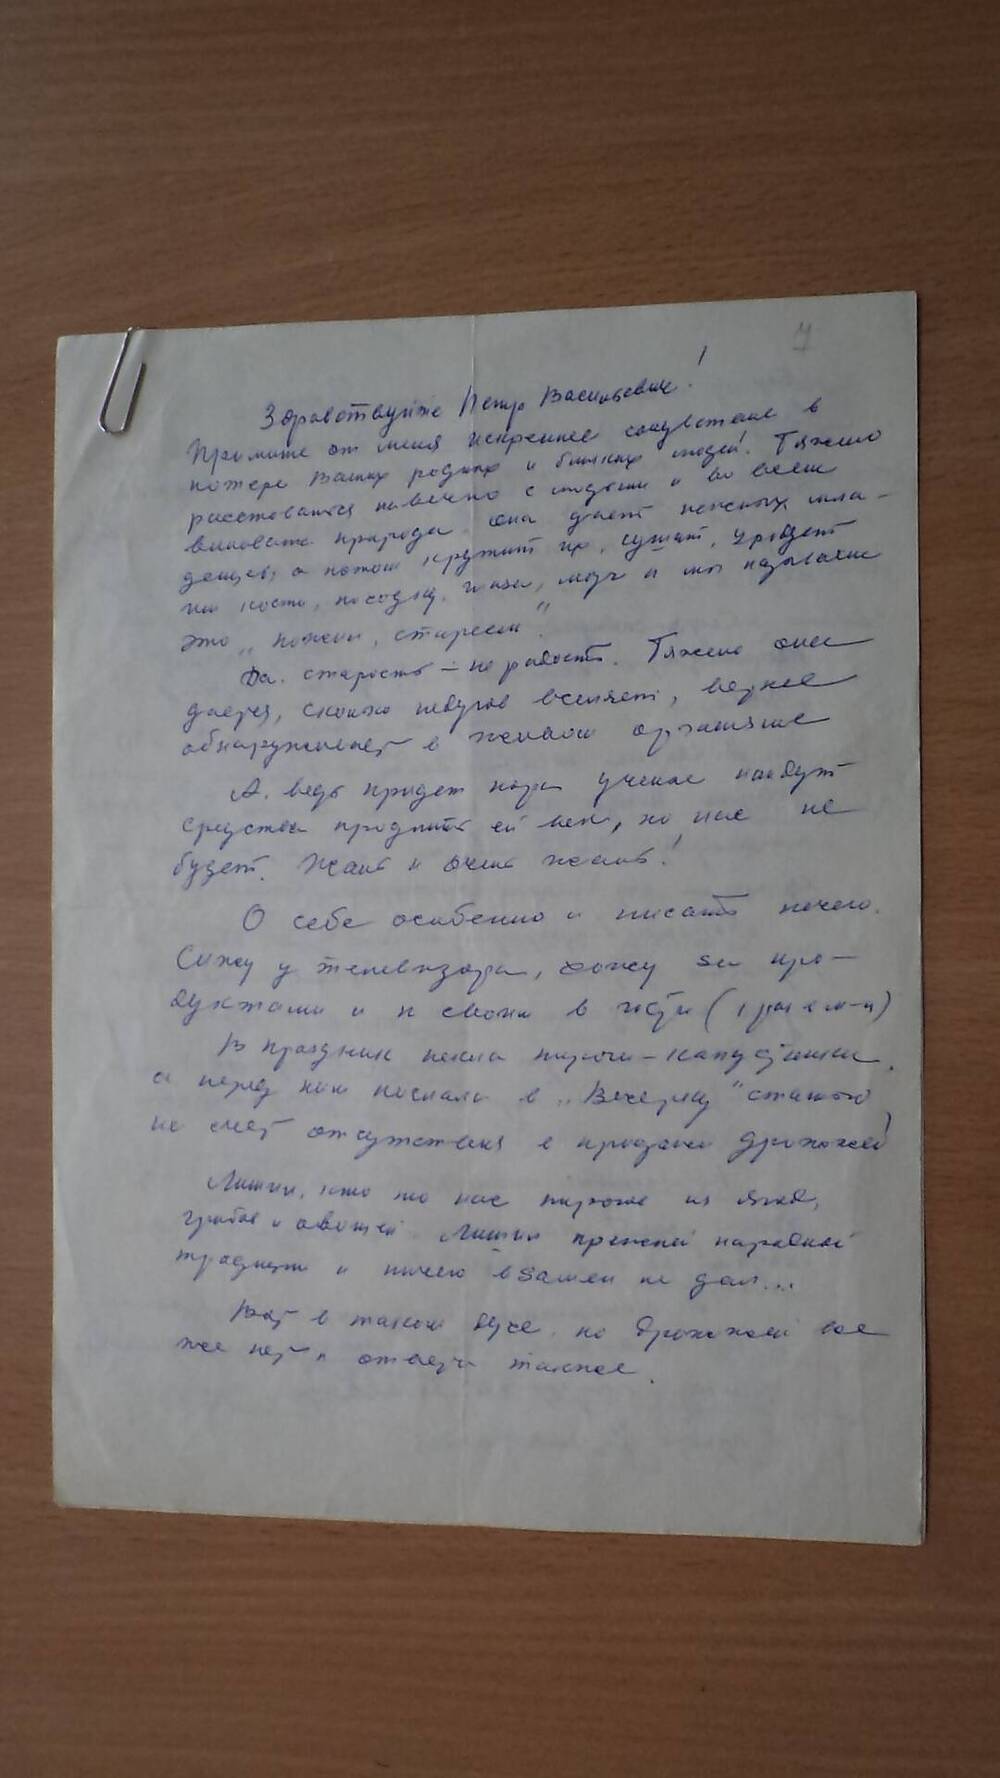 7
Здравствуйте Петр Васильевич!
Примите от меня искреннее сочувствие в
потере Ваших родных и близких людей! Тяжело
расставаться навечно с людьми и во всем
виновата природа она дает нежных мла-
денцев, а потом крутит их, сушит, уродует
им кости, походку, глаза, мозг и мы называем
это „пожил, старость".
Да. старость – не радость. Тяжело она
дается, сколько недугов вселяет, вернее
обнаруживает в живом организме
А. ведь придет пора ученые найдут
средства продлить ей век, но нас не
будет. Жаль и очень жаль!
О себе особенно и писать нечего.
Сижу у телевизора, хожу за про-
дуктами и к своим в гости (1 раз в м-ц)
В праздник пекла пироги – капустники
а перед ним послала в „Вечерку" статью
на счет отсутствия в продаже дрожжей
Лишили, кто то нас пирогов из ягод,
грибов и овощей. Лишили прежней народной
традиции и ничего взамен не дали...
Вот в таком духе. но дрожжей все
же нет и ответа также.